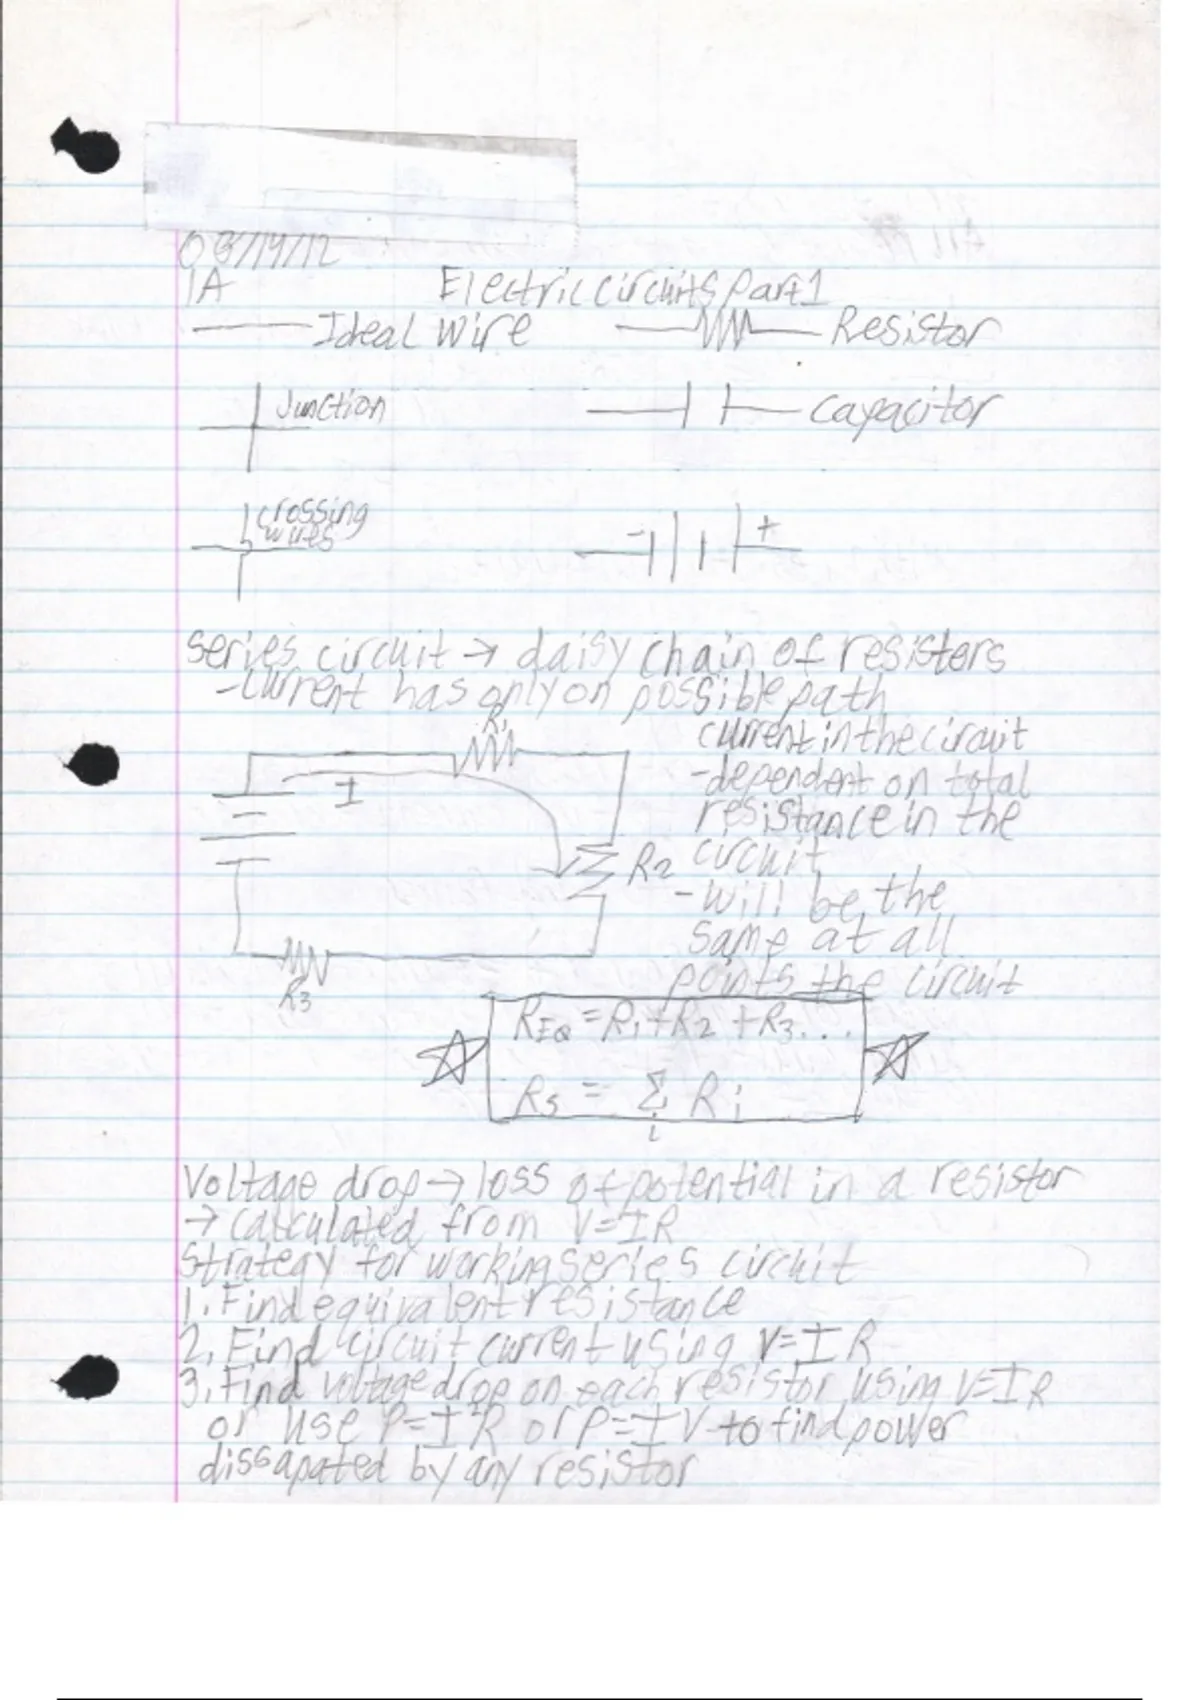 03/19/12
1A
Electric circuits Part 1
Ideal wire
Resistor
Junction
capacitor
crossing
wires
- +
series circuit → daisy chain of resisters
- current has only on possible path
R1
current in the circuit
I
- dependant on total
resistance in the
R2 circuit
- will be the
same at all
points the circuit
R3
REQ = R1 + R2 + R3...
Rs = Σ Ri
i
Voltage drop → loss of potential in a resistor
→ calculated from V=IR
Strategy for working series circuit
1. Find equivalent resistance
2. Find circuit current using V=IR
3. Find voltage drop on each resistor using V=IR
or use P=I²R or P=IV to find power
dissapated by any resistor